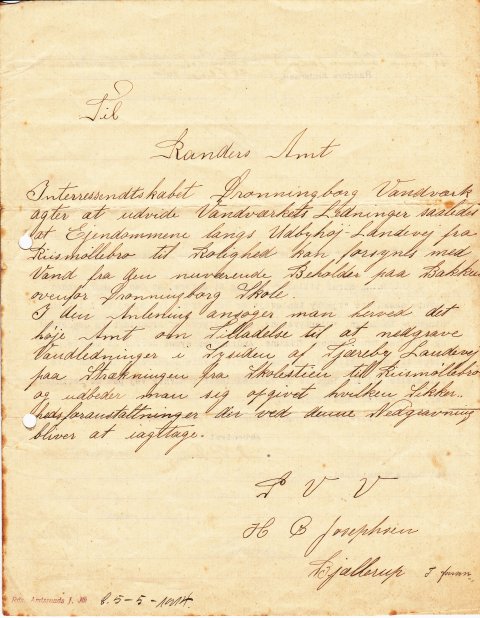 Til
Randers Amt
Interressendtskabet Dronningborg Vandværk
agter at udvide Vandværkets Ledninger saaledes
at Ejendommene langs Udbyhøj Landevej fra
Riismøllebro til Rolighed kan forsynes med
Vand fra den nuværende Beholder paa Bakken
ovenfor Dronningborg Skole.
I den Anledning ansøger man herved det
høje Amt om Tilladelse til at nedgrave
Vandledninger i Sysiden af Tjæreby Landevej
paa Strækningen fra Skolestien til Riismøllebro
og udbeder man sig opgivet hvilken Sikker-
hedsforanstaltninger der ved denne Nedgravning
bliver at iagttage.
D V V
H B Josephsen
Bjällerup
5-5-1914.